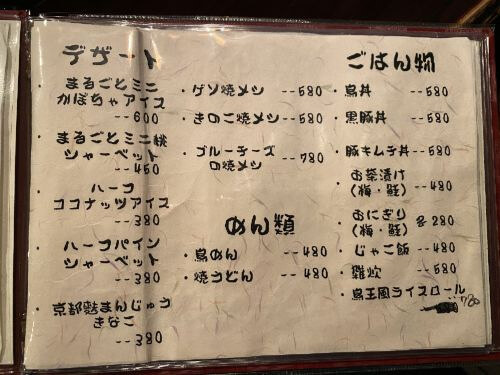 デザート
・まるごとミニ
かぼちゃアイス
--600
・まるごとミニ桃
シャーベット
--450
・ハーフ
ココナッツアイス
--380
・ハーフパイン
シャーベット
--380
・京都麩まんじゅう
きなこ
--380
・ゲソ焼メシ --580
・きのこ焼メシ --580
・ブルーチーズ
の焼メシ --780
めん類
・鳥めん --480
・焼うどん --480
ごはん物
・鳥丼 --580
・黒豚丼 --580
・豚キムチ丼--580
・お茶漬け
(梅・鮭) --480
・おにぎり
(梅・鮭) 各280
・じゃこ飯 --480
・雑炊 --580
・鳥王風ライスロール
780